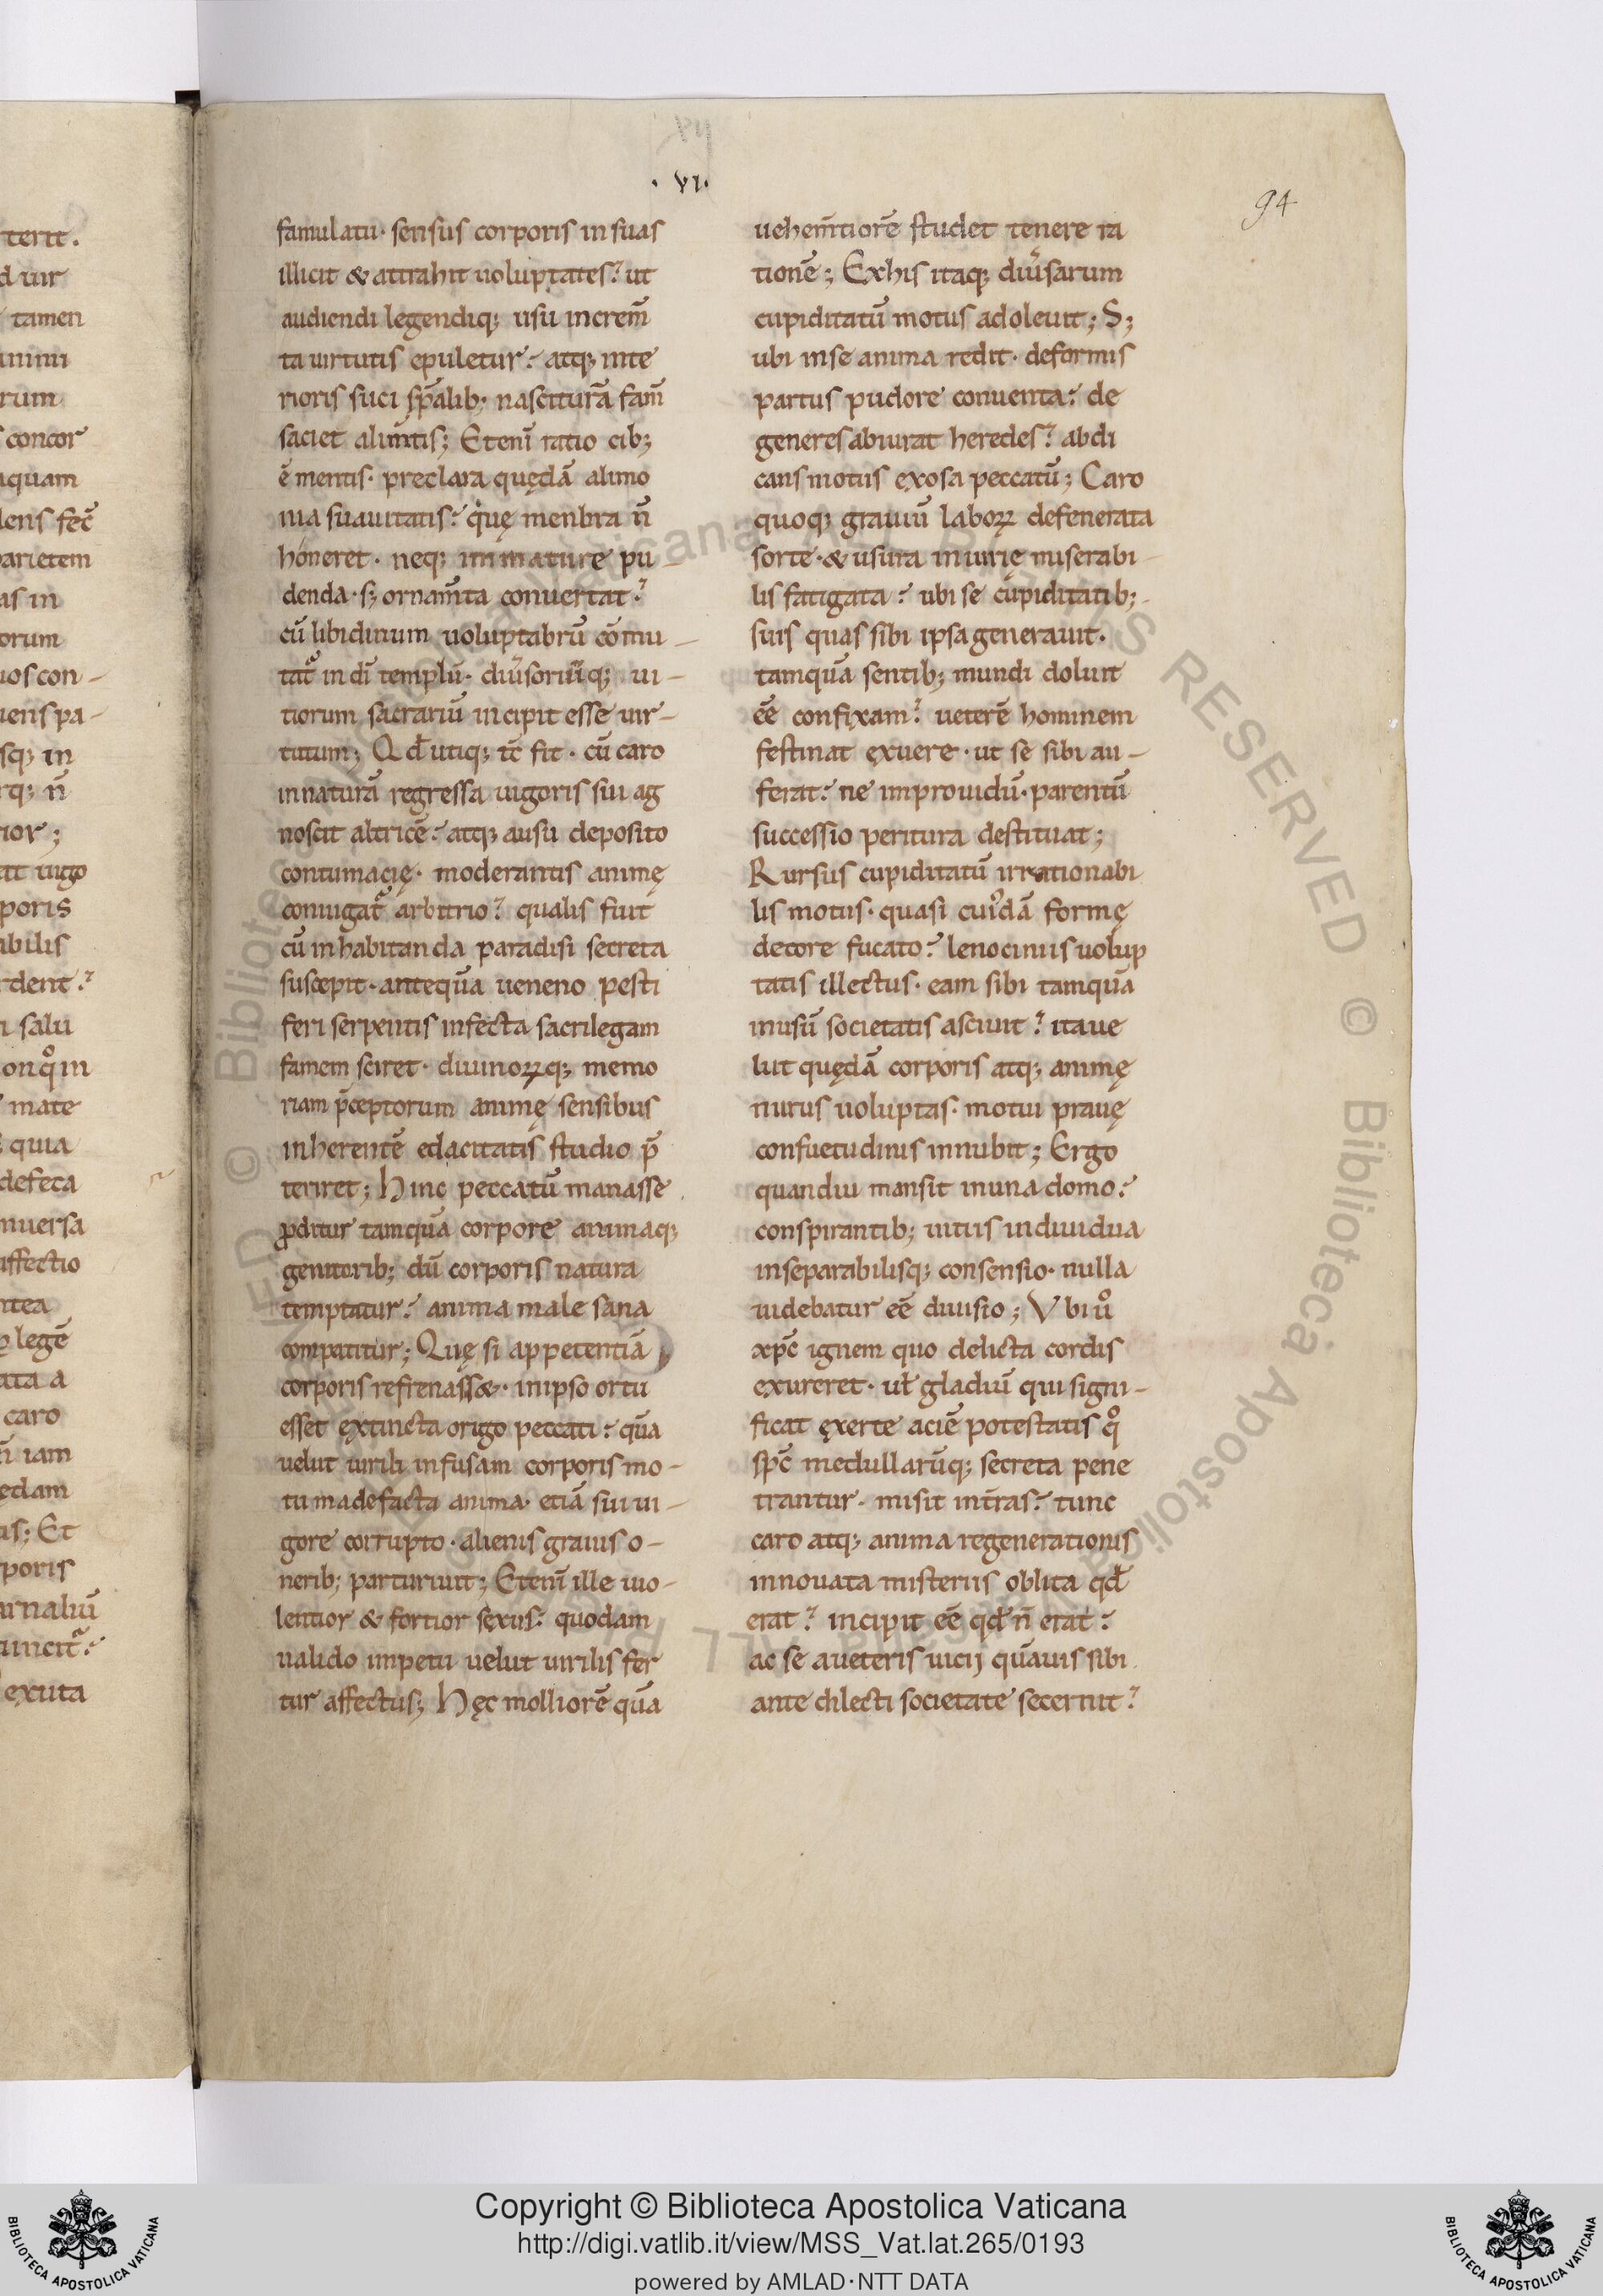 terit.
d uir
tamen
inimi
rum
concor
iquam
lens fec̄
parietem
as in
orum
ios con-
iens pa-
sq; in
rq; n̄
ior;
at iugo
poris
ibilis
rdent.
n salu
onq̊ in
mate
quia
defeca
nuersa
affectio
ntea
legē
ata a
caro
iam
edam
us; Et
poris
urnaliū
uincit᷑
exuta
· VI ·
94
famulatu· sensus corporis in suas
illicit & attrahit uoluptates? ut
audiendi legendiq; usu increm̄
ta uirtutis epuletur? atq; inte
rioris suci sp̄alib; nasciturā fam̄
saciet alim̄tis; Etenī ratio cib;
ē mentis· preclara quędā alimo
nia suauitatis? quę menbra n̄
honeret· neq; immature pu-
denda· s; ornam̄ta conuertat?
cū libidinum uoluptabrū cōmu-
tat᷑ in dī templū· diu̾soriūq; ui-
tiorum sacrariū incipit esse uir-
tutum; Qđ utiq; tc̄ fit· cū caro
in naturā regressa uigoris sui ag
noscit altricē? atq; ausu deposito
contumacię· moderantis animę
coniugat᷑ arbitrio? qualis fuit
cū inhabitanda paradisi secreta
suscepit· anteqūa ueneno pesti
feri serpentis infecta sacrilegam
famem sciret· diuinoꝝq; memo
riam p̄ceptorum animę sensibus
inherentē edacitatis studio p̄
teriret; Hinc peccatū manasse
ꝓditur tamqūa corpore animaq;
genitorib; dū corporis natura
temptatur? anima male sana
compatitur; Quę si appetentiā
corporis refrenassæ· in ipso ortu
esset extincta origo peccati? qūa
uelut uirili infusam corporis mo-
tu madefacta anima· etiā sui ui-
gore corrupto· alienis grauis o-
nerib; parturiuit; Etenī ille uio-
lentior & fortior sexus? quodam
ualido impetu uelut uirilis fer
tur affectus; Hęc molliorē qūa
uehem̄tiorē studet tenere ra
tionē; Ex his itaq; diu̾sarum
cupiditatū motus adoleuit; S;
ubi in se anima redit· deformis
partus pudore conuenta? de
generes abiurat heredes? abdi
cans motus exosa peccatū; Caro
quoq; grauiū laboꝝ defenerata
sorte· & usura iniurię miserabi-
lis fatigata? ubi se cupiditatib;
suis quas sibi ipsa generauit·
tamqūa sentib; mundi doluit
eē confixam? ueterē hominem
festinat exuere· ut se sibi au-
ferat? ne improuidū· parentū
successio peritura destituat;
Rursus cupiditatū irrationabi
lis motus· quasi cuiꝰdā formę
decore fucato? lenociniis uolup
tatis illectus· eam sibi tamqūa
in usū societatis asciuit? ita ue
lut quędā corporis atq; animę
nurus uoluptas· motui prauę
consuetudinis innubit; Ergo
quandiu mansit in una domo?
conspirantib; uitiis indiuidua
inseparabilisq; consensio· nulla
uidebatur eē diuisio; Vbi ů
xp̄c ignem quo delicta cordis
exureret· uł gladiū qui signi-
ficat exerte aciē potestatis q̊
sp̄c medullarūq; secreta pene
trantur· misit in t̄ras? tunc
caro atq; anima regenerationis
innouata misteriis oblita qđ
erat? incipit eē qđ n̄ erat?
ac se a ueteris uicij qūauis sibi
ante dilecti societate secernit?
Copyright © Biblioteca Apostolica Vaticana
http://digi.vatlib.it/view/MSS_Vat.lat.265/0193
powered by AMLAD·NTT DATA
BIBLIOTECA APOSTOLICA VATICANA
BIBLIOTECA APOSTOLICA VATICANA